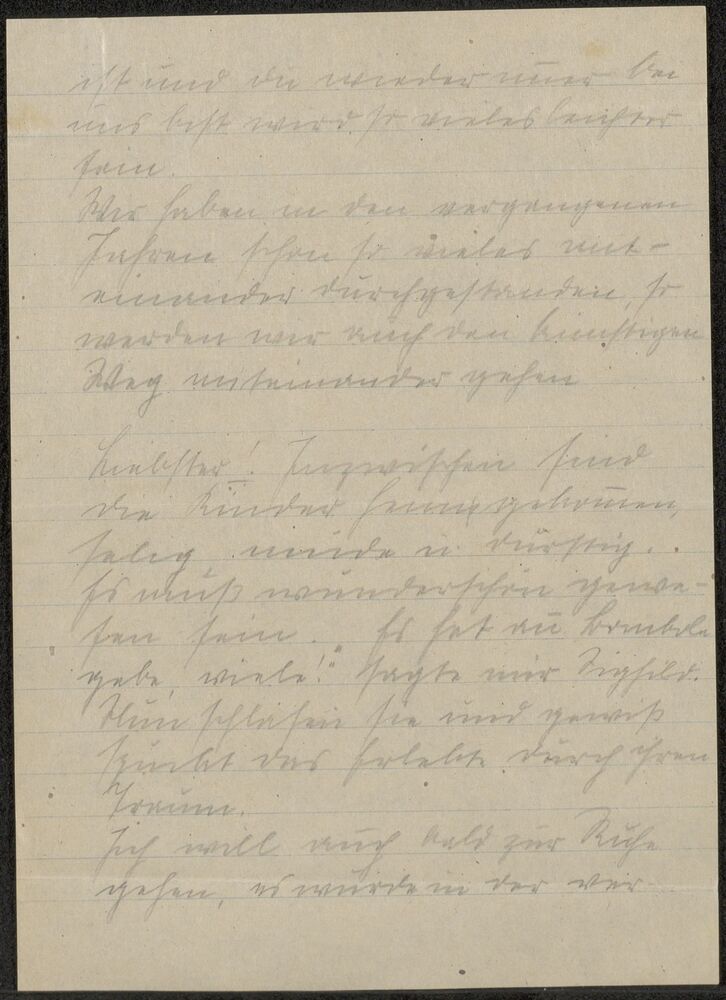 ist und du wieder immer bei
uns bist wird so vieles leichter
sein.
Wir haben in den vergangenen
Jahren schon so vieles mit-
einander durchgestanden, so
werden wir auch den künftigen
Weg miteinander gehen
Liebster! Inzwischen sind
die Kinder heimgekommen,
selig, müde u. durstig.
Es muß wunderschön gewe-
sen sein. "Es hat au Bombole
gebe, viele!" sagte mir Sighild.
Nun schlafen sie und gewiß
spuckt das Erlebte durch ihren
Traum.
Ich will auch bald zur Ruhe
gehen, es wurde in der ver-